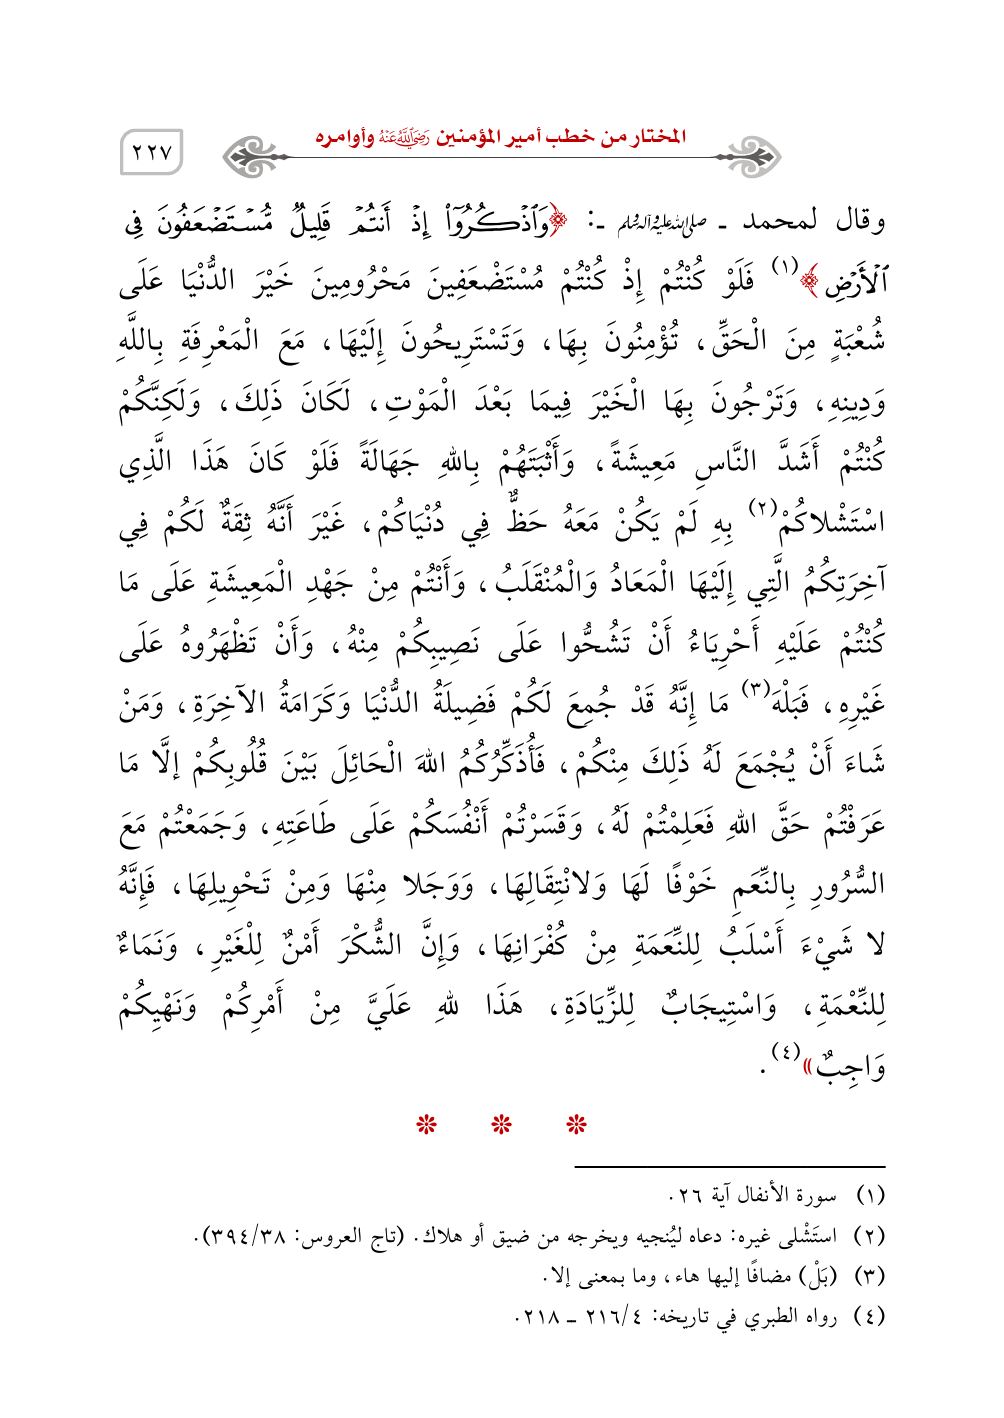 المختار من خطب أمير المؤمنين رَضِيَ اللَّهُ عَنْهُ وأوامره
٢٢٧
وقال لمحمد ـ صلى الله عليه وآله وسلم ـ: ﴿وَٱذۡكُرُوٓاْ إِذۡ أَنتُمۡ قَلِيلٞ مُّسۡتَضۡعَفُونَ فِي
ٱلۡأَرۡضِ﴾(١) فَلَوْ كُنْتُمْ إِذْ كُنْتُمْ مُسْتَضْعَفِينَ مَحْرُومِينَ خَيْرَ الدُّنْيَا عَلَى
شُعْبَةٍ مِنَ الْحَقِّ، تُؤْمِنُونَ بِهَا، وَتَسْتَرِيحُونَ إِلَيْهَا، مَعَ الْمَعْرِفَةِ بِاللَّهِ
وَدِينِهِ، وَتَرْجُونَ بِهَا الْخَيْرَ فِيمَا بَعْدَ الْمَوْتِ، لَكَانَ ذَلِكَ، وَلَكِنَّكُمْ
كُنْتُمْ أَشَدَّ النَّاسِ مَعِيشَةً، وَأَثْبَتَهُمْ بِاللهِ جَهَالَةً فَلَوْ كَانَ هَذَا الَّذِي
اسْتَشْلاكُمْ(٢) بِهِ لَمْ يَكُنْ مَعَهُ حَظٌّ فِي دُنْيَاكُمْ، غَيْرَ أَنَّهُ ثِقَةٌ لَكُمْ فِي
آخِرَتِكُمُ الَّتِي إِلَيْهَا الْمَعَادُ وَالْمُنْقَلَبُ، وَأَنْتُمْ مِنْ جَهْدِ الْمَعِيشَةِ عَلَى مَا
كُنْتُمْ عَلَيْهِ أَحْرِيَاءُ أَنْ تَشُحُّوا عَلَى نَصِيبِكُمْ مِنْهُ، وَأَنْ تَظْهَرُوهُ عَلَى
غَيْرِهِ، فَبَلْهَ(٣) مَا إِنَّهُ قَدْ جُمِعَ لَكُمْ فَضِيلَةُ الدُّنْيَا وَكَرَامَةُ الآخِرَةِ، وَمَنْ
شَاءَ أَنْ يُجْمَعَ لَهُ ذَلِكَ مِنْكُمْ، فَأُذَكِّرُكُمُ اللهَ الْحَائِلَ بَيْنَ قُلُوبِكُمْ إلَّا مَا
عَرَفْتُمْ حَقَّ اللهِ فَعَلِمْتُمْ لَهُ، وَقَسَرْتُمْ أَنْفُسَكُمْ عَلَى طَاعَتِهِ، وَجَمَعْتُمْ مَعَ
السُّرُورِ بِالنِّعَمِ خَوْفًا لَهَا وَلانْتِقَالِهَا، وَوَجَلا مِنْهَا وَمِنْ تَحْوِيلِهَا، فَإِنَّهُ
لا شَيْءَ أَسْلَبُ لِلنِّعَمَةِ مِنْ كُفْرَانِهَا، وَإِنَّ الشُّكْرَ أَمْنٌ لِلْغَيْرِ، وَنَمَاءٌ
لِلنِّعْمَةِ، وَاسْتِيجَابٌ لِلزِّيَادَةِ، هَذَا للهِ عَلَيَّ مِنْ أَمْرِكُمْ وَنَهْيِكُمْ
وَاجِبٌ»(٤).
(١) سورة الأنفال آية ٢٦.
(٢) استَشْلى غيره: دعاه ليُنجيه ويخرجه من ضيق أو هلاك. (تاج العروس: ٣٩٤/٣٨).
(٣) (بَلْ) مضافًا إليها هاء، وما بمعنى إلا.
(٤) رواه الطبري في تاريخه: ٢١٦/٤ ـ ٢١٨.